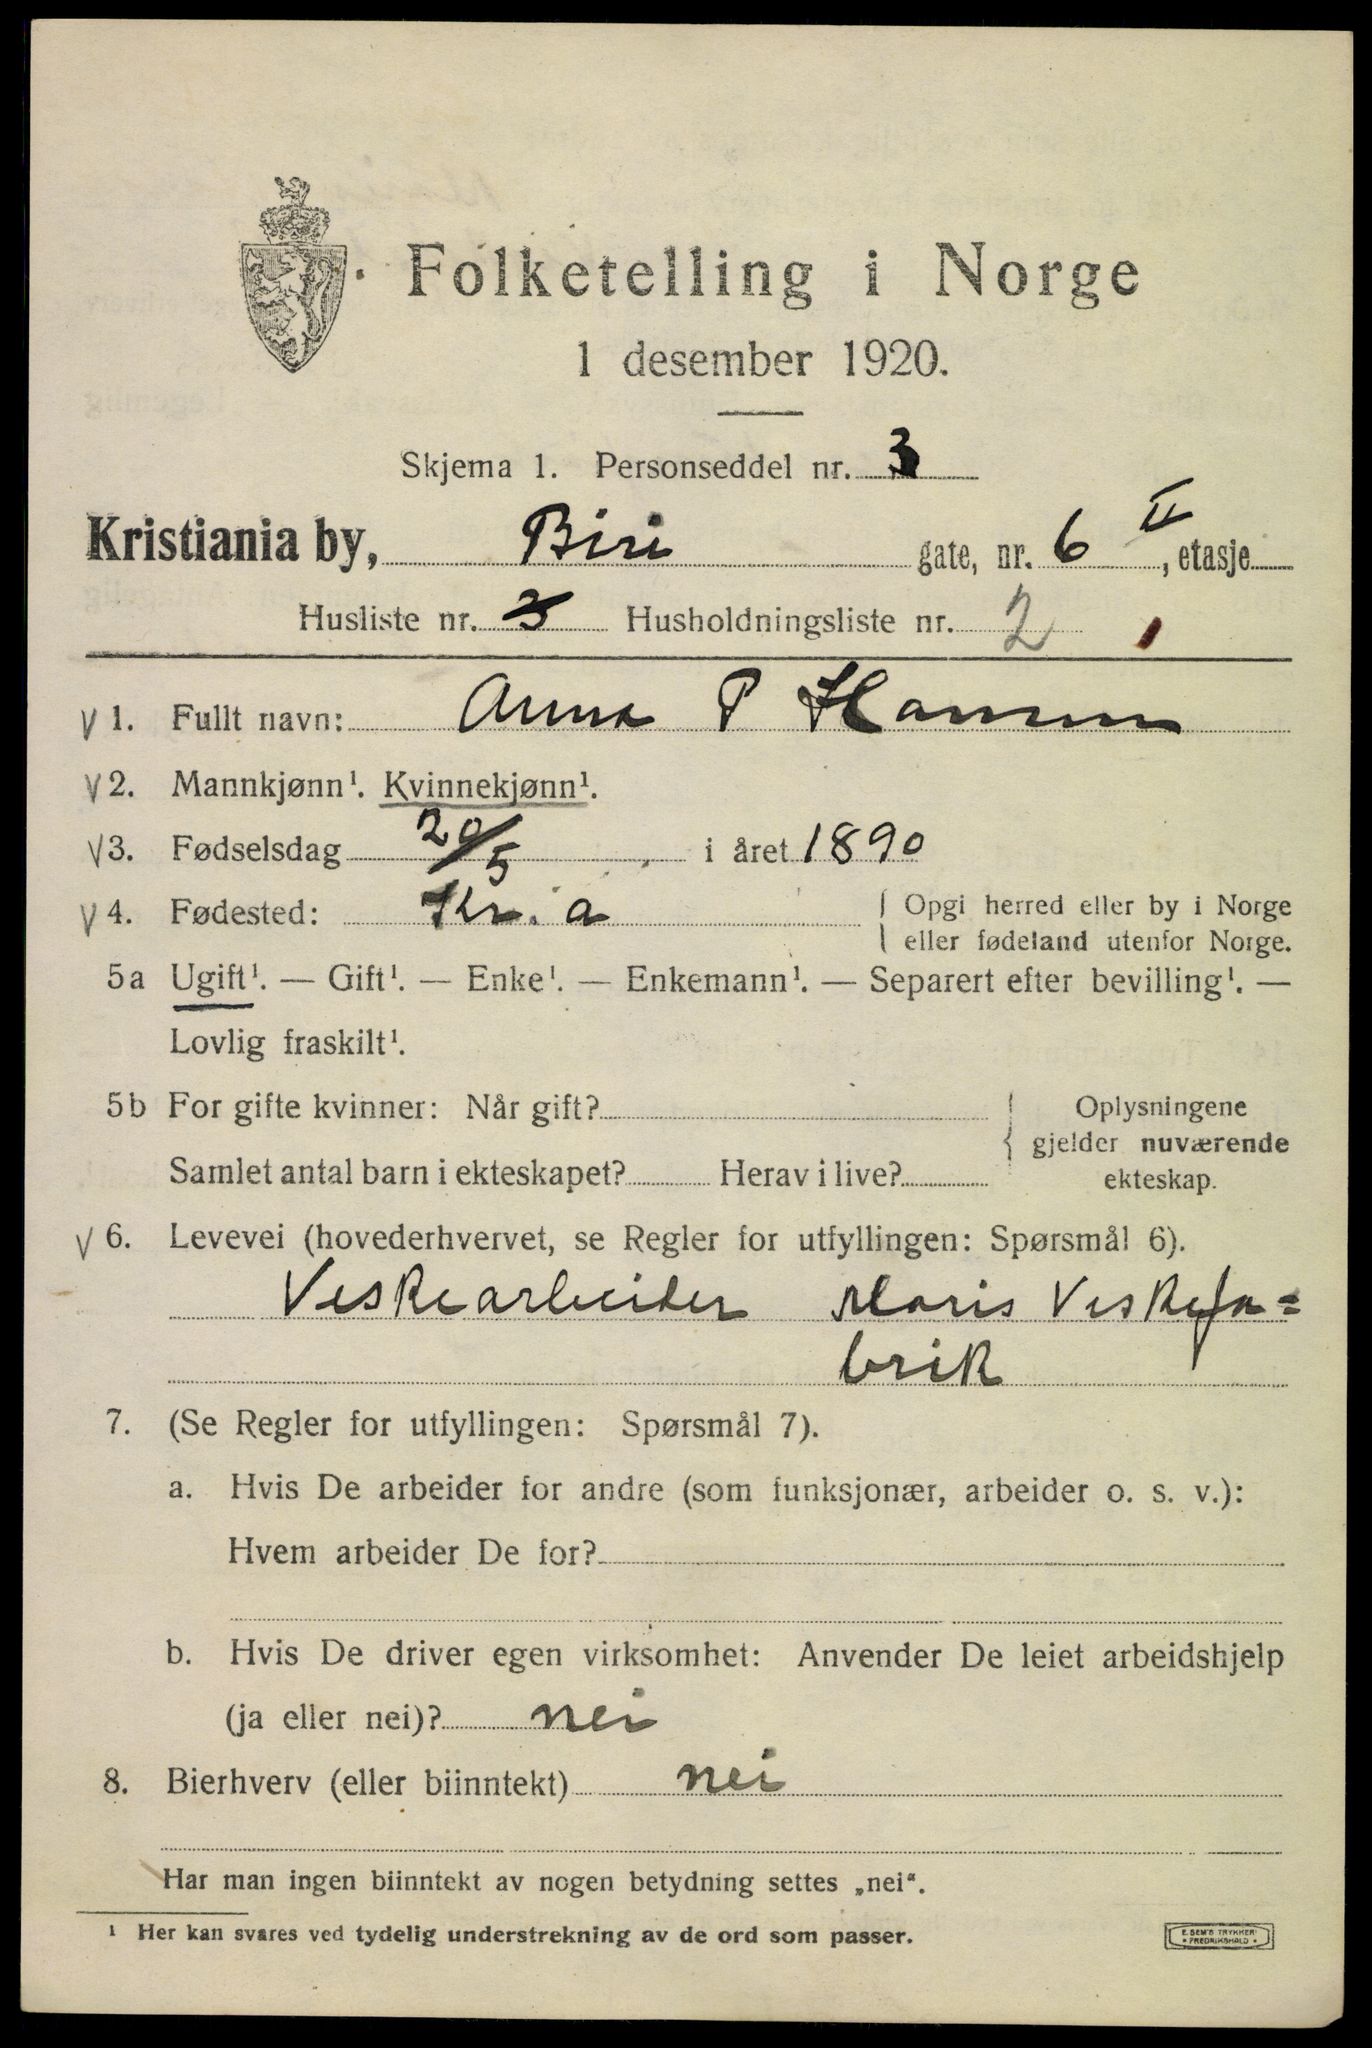 Folketelling i Norge
1 desember 1920.
Skjema 1. Personseddel nr. 3
Kristiania by, Biri gate, nr. 6 II, etasje
Husliste nr. 3 Husholdningsliste nr. 2
V 1. Fullt navn: Anna P Hansen
V 2. Mannkjønn¹. Kvinnekjønn¹.
V 3. Fødselsdag 20/5 i året 1890
V 4. Fødested: Kr.a { Opgi herred eller by i Norge
eller fødeland utenfor Norge.
5a Ugift¹. — Gift¹. — Enke¹. — Enkemann¹. — Separert efter bevilling¹. —
Lovlig fraskilt¹.
5b For gifte kvinner: Når gift? { Oplysningene
gjelder nuværende
Samlet antal barn i ekteskapet? Herav i live? ekteskap.
V 6. Levevei (hovederhvervet, se Regler for utfyllingen: Spørsmål 6).
Veskearbeider Maris Veskefa=
brik
7. (Se Regler for utfyllingen: Spørsmål 7).
a. Hvis De arbeider for andre (som funksjonær, arbeider o. s. v.):
Hvem arbeider De for?
b. Hvis De driver egen virksomhet: Anvender De leiet arbeidshjelp
(ja eller nei)? nei
8. Bierhverv (eller biinntekt) nei
Har man ingen biinntekt av nogen betydning settes „nei“.
¹ Her kan svares ved tydelig understrekning av de ord som passer.
E. SEM'S TRYKKERI
* FREDRIKSHALD *